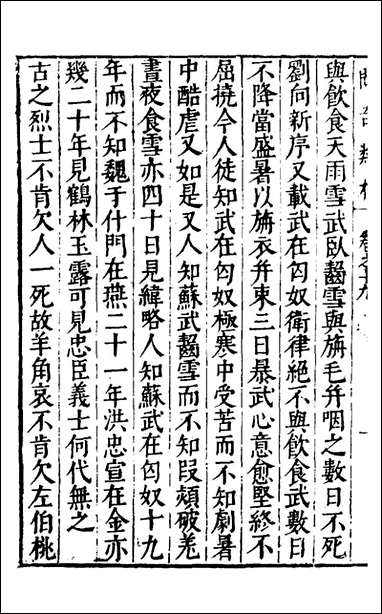 與飲食天雨雪武臥齧雪與旃毛并咽之數日不死
劉向新序又載武在匈奴衛律絕不與飲食武數日
不降當盛暑以旃衣并束三日暴武心意愈堅終不
屈撓今人徒知武在匈奴極寒中受苦而不知劇暑
中酷虐又如是又人知蘇武齧雪而不知段熲破羗
晝夜食雪亦四十日見緯略人知蘇武在匈奴十九
年而不知魏于什門在燕二十一年洪忠宣在金亦
幾二十年見鶴林玉露可見忠臣義士何代無之
古之烈士不肯欠人一死故羊角哀不肯欠左伯桃